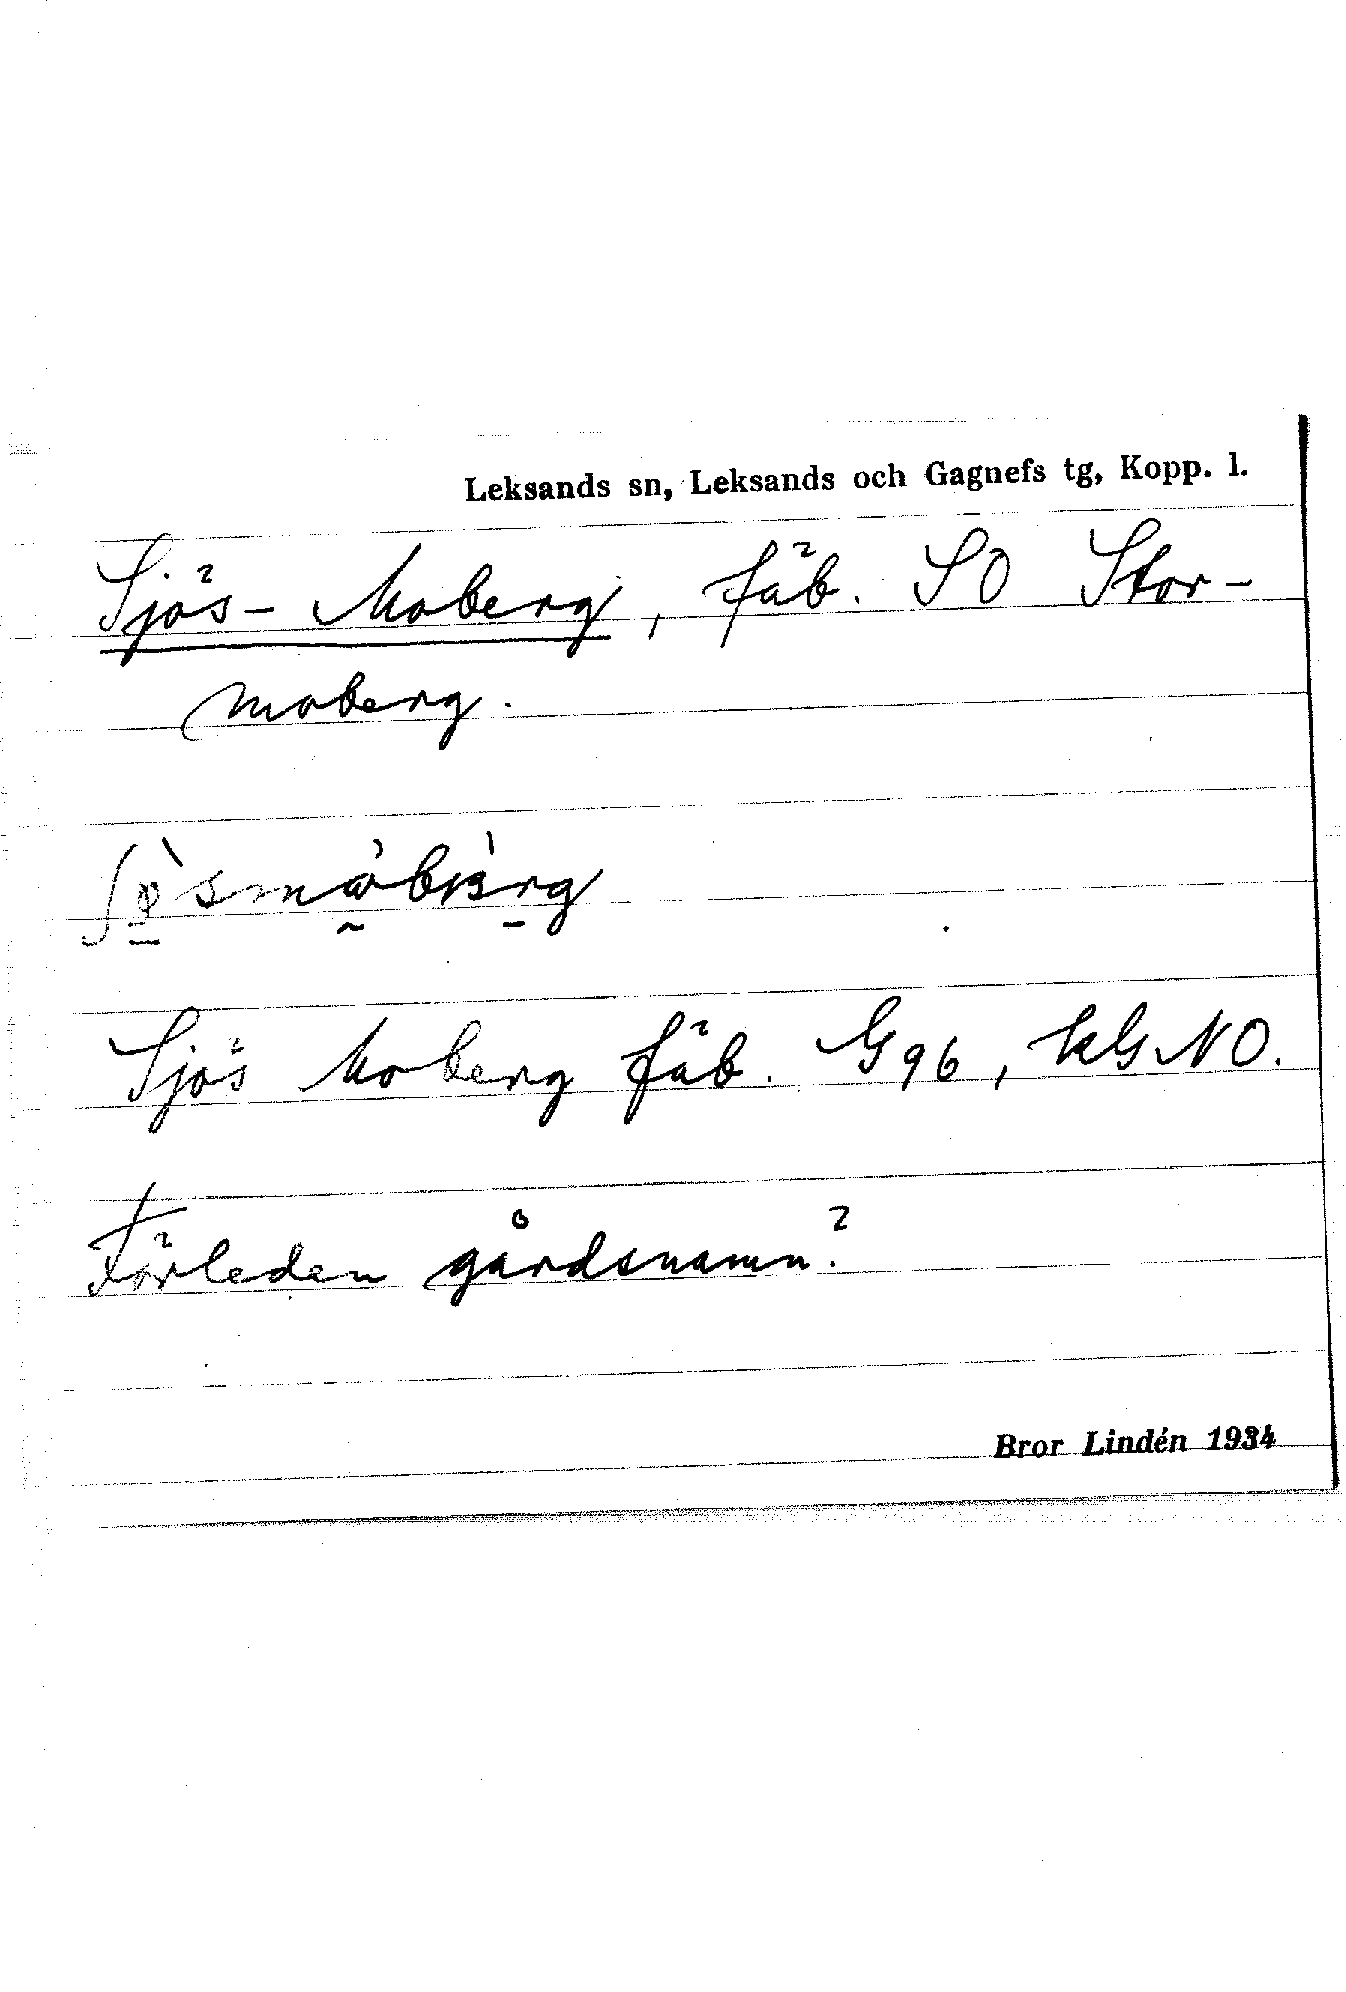 Leksands sn, Leksands och Gagnefs tg, Kopp. l.
Sjös-Moberg, fäb. SO Stor-
moberg.
Sjös Moberg fäb. G96, kG NO.
Förleden gårdsnamn?
Bror Lindén 1934